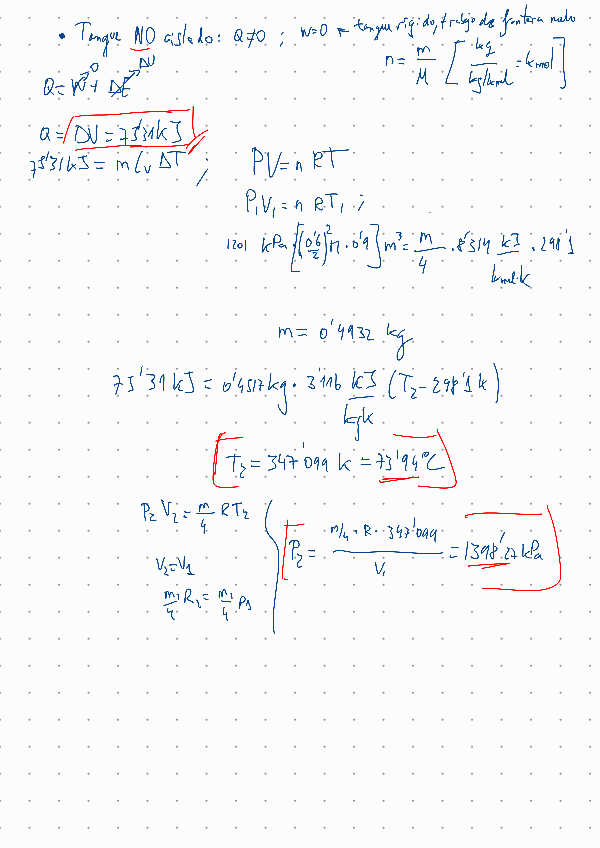 • Tanque NO aislado: Q≠0 ; W=0 ← tanque rígido, trabajo de frontera nulo
n = m/M [kg/(kg/kmol) = kmol]
Q = W→0 + ΔE→ΔU
Q = ΔU = 75'31 kJ
75'31 kJ = m Cv ΔT ; PV = n RT
P₁V₁ = n RT₁ ;
1201 kPa [(0'6/2)² π · 0'9] m³ = m/4 · 8'314 kJ/kmol·K · 298'1
m = 0'4932 kg
75'31 kJ = 0'4517 kg · 3'116 kJ/kgK (T₂ - 298'1 K)
T₂ = 347'099 K = 73'94 °C
P₂ V₂ = m/4 RT₂
P₂ = (m/4 · R · 347'099)/V₁ = 1398'27 kPa
V₂ = V₁